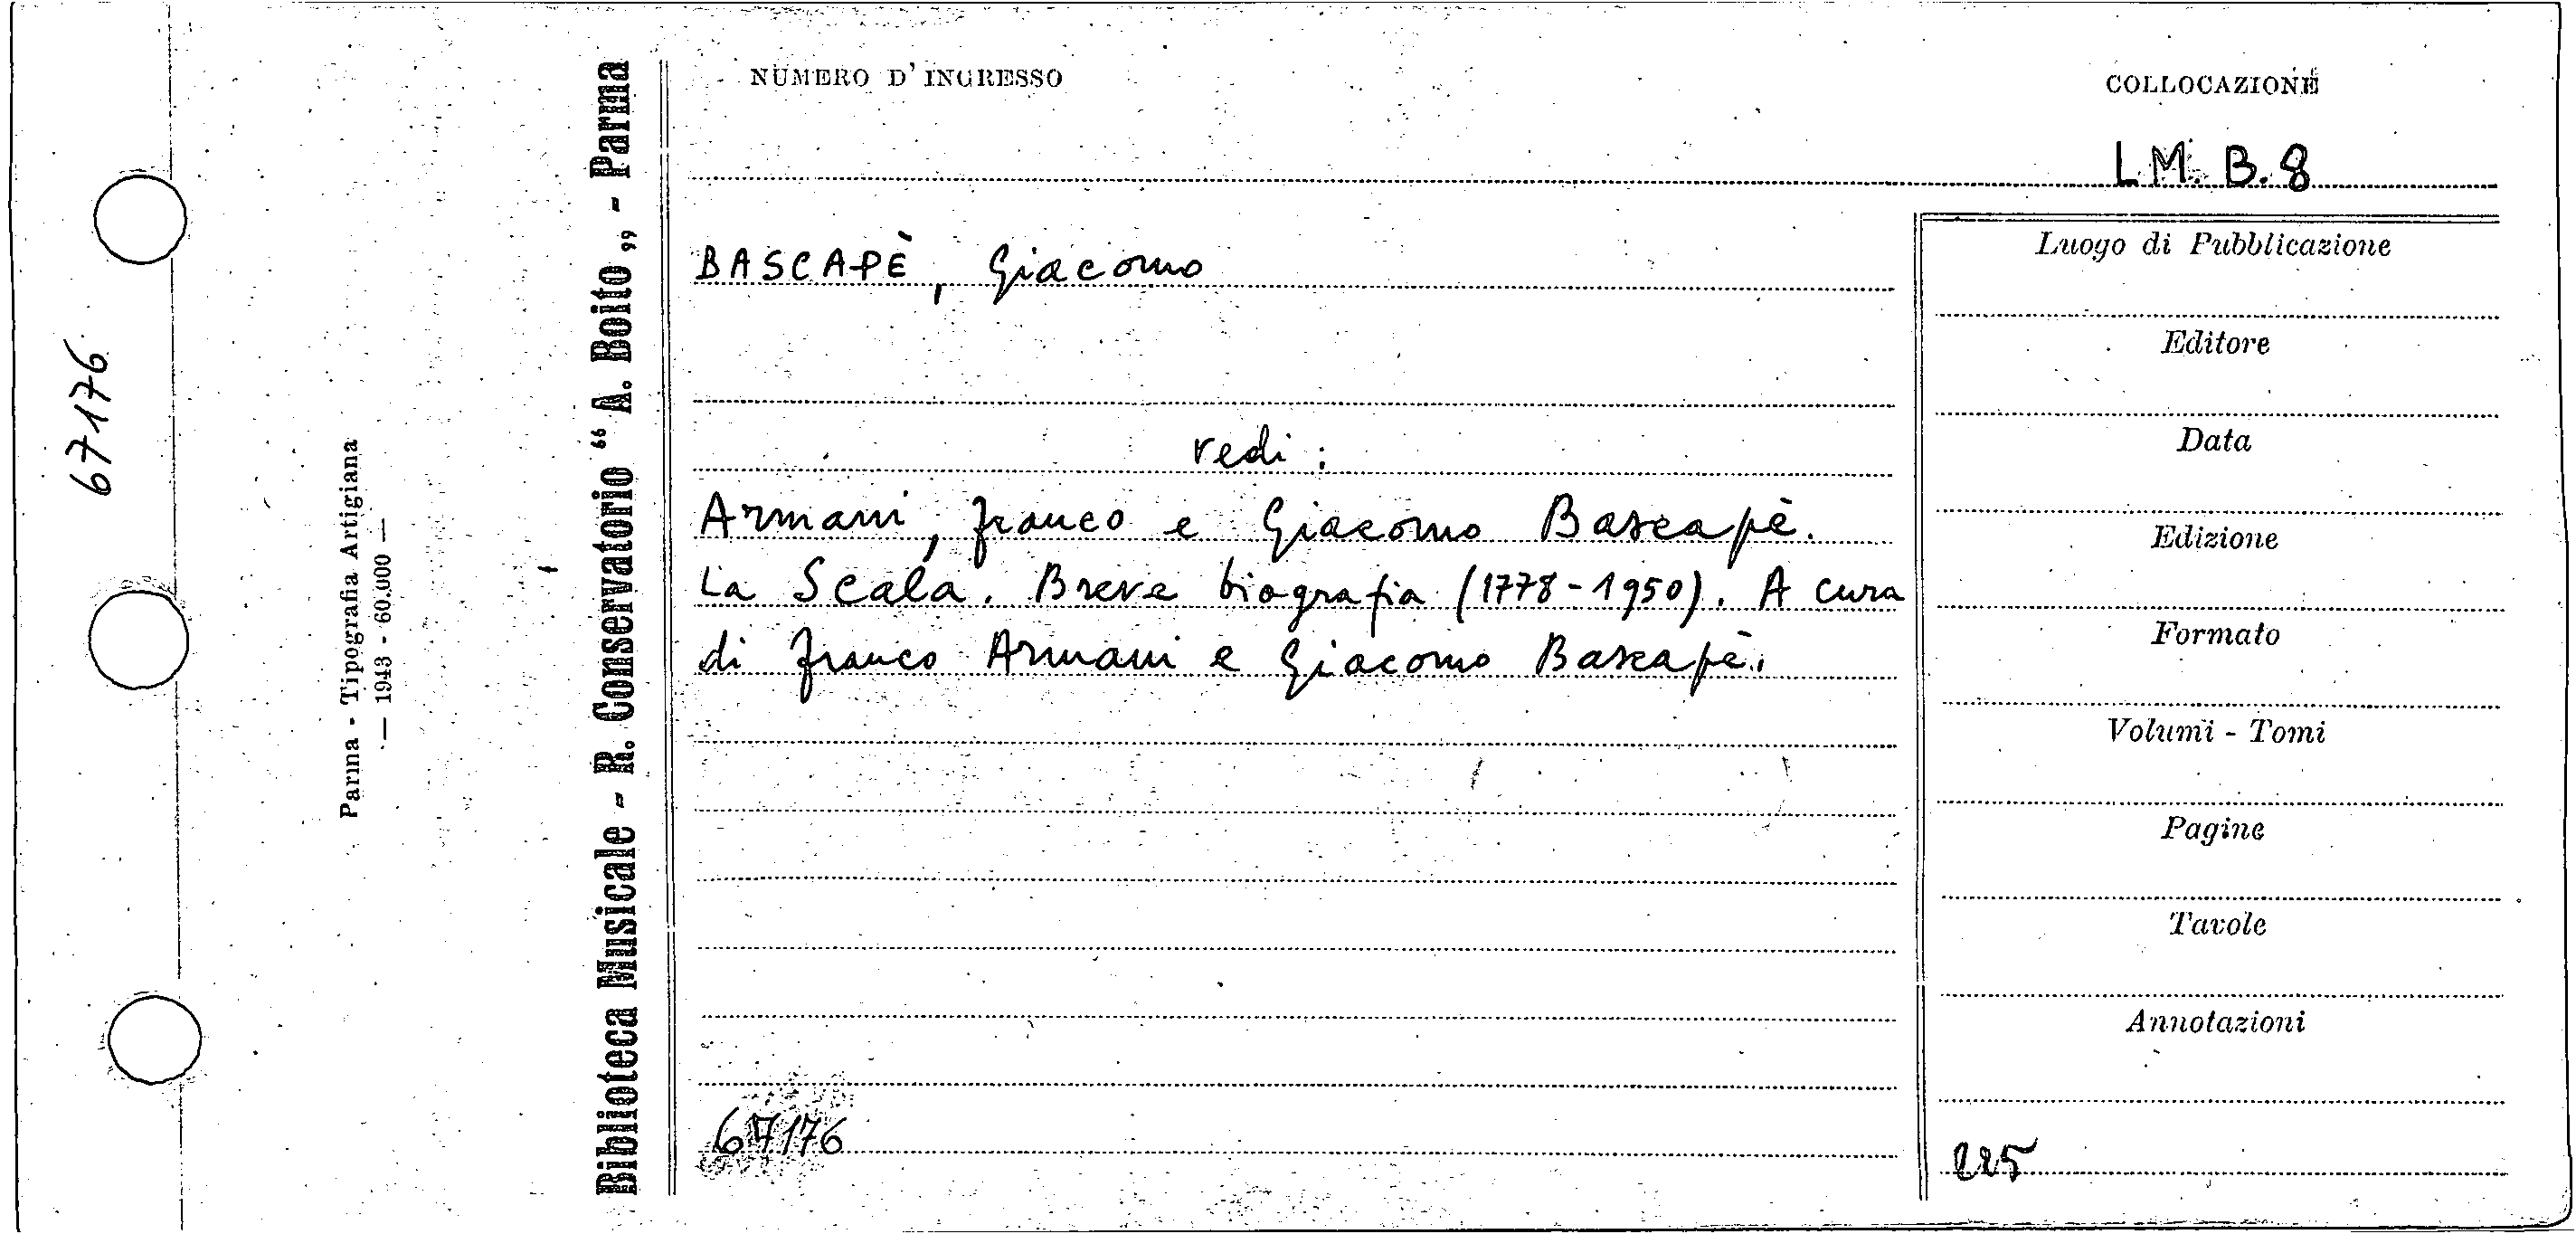 67176
Parma - Tipografia Artigiana
— 1943 - 60.000 —
Biblioteca Musicale - R. Conservatorio “ A. Boito „ - Parma
NUMERO D' INGRESSO
COLLOCAZIONE
LM. B.8
BASCAPÈ, Giacomo
vedi :
Armani, Franco e Giacomo Bascapè.
La Scala. Breve biografia (1778-1950). A cura
di Franco Armani e Giacomo Bascapè.
67176
Luogo di Pubblicazione
Editore
Data
Edizione
Formato
Volumi - Tomi
Pagine
Tavole
Annotazioni
225